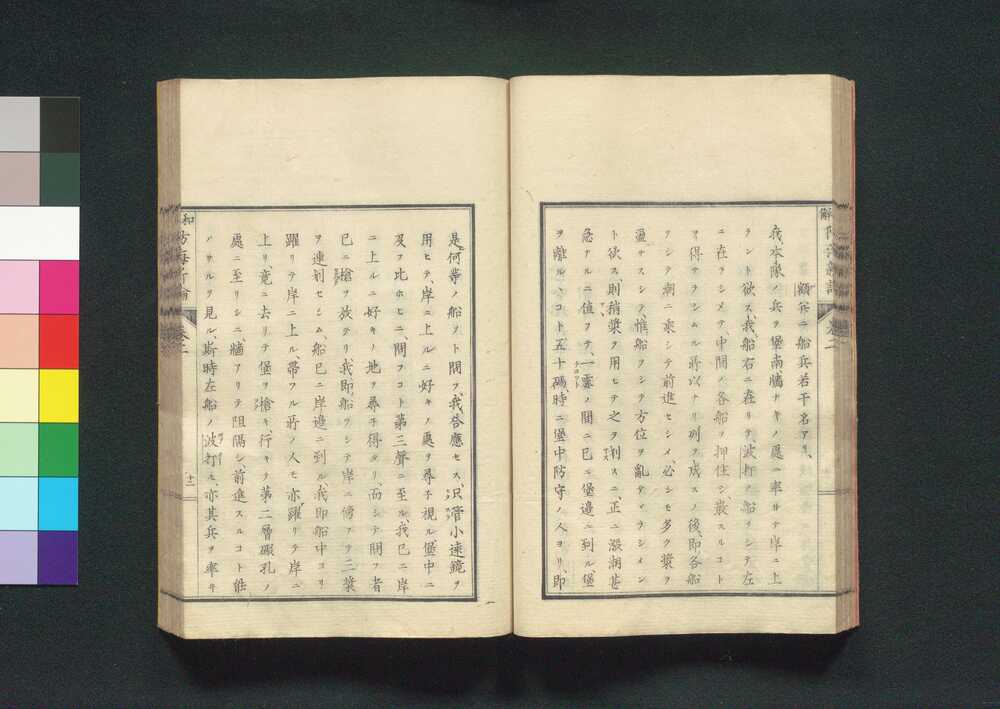 額兵ニ船兵若干名アリ、
我本隊ノ兵ヲ堡南牆ナキノ處ニ率ヰテ岸ニ上
ラント欲ス、我船右ニ在リテ、波打ノ船ヲシテ左
ニ在ラシメテ、中間ノ各船ヲ押住シ、嚴スルコト
ヲ得サラシム、所以ナリ列ヲ成スノ後、即各船
ヲシテ潮ニ乘シテ前進セシメ、必シモ多ク槳ヲ
盪サスシテ、惟船ヲシテ方位ヲ亂サヽラシメン
ト欲ス、則梢槳ヲ用ヒテ之ヲ制ス、正ニ漲潮甚
急ナルニ値フテ、一霎ノ間ニ已ニ堡邊ニ到ル、堡
ヲ離ルヽコト五十碼、時ニ堡中防守ノ人ヨリ、即
是何等ノ船ゾト問フ、我答應セス、只管小遠鏡ヲ
用ヒテ、岸ニ上ルニ好キノ處ヲ尋子視ル、堡中ニ
又フ比ホヒニ、問フコト第三聲ニ至ル、我已ニ岸
ニ上ルニ好キノ地ヲ尋子得タリ、而シテ問フ者
已ニ槍ヲ放テリ、我即船ヲシテ岸ニ傍フテ三槳
ヲ連刻セシム、船已ニ岸邊ニ到ル、我即船中ヨリ
躍リテ岸ニ上ル、帶フル所ノ人モ亦躍リテ岸ニ
上リ竟ニ去リテ堡ヲ搶ク、行キテ第二層礮孔ノ
處ニ至リシニ、牆アリテ阻隔シ、前進スルコト能
ハサルヲ見ル、斯時左船ノ波打モ、亦其兵ヲ率ヰ
和
卷二
十二